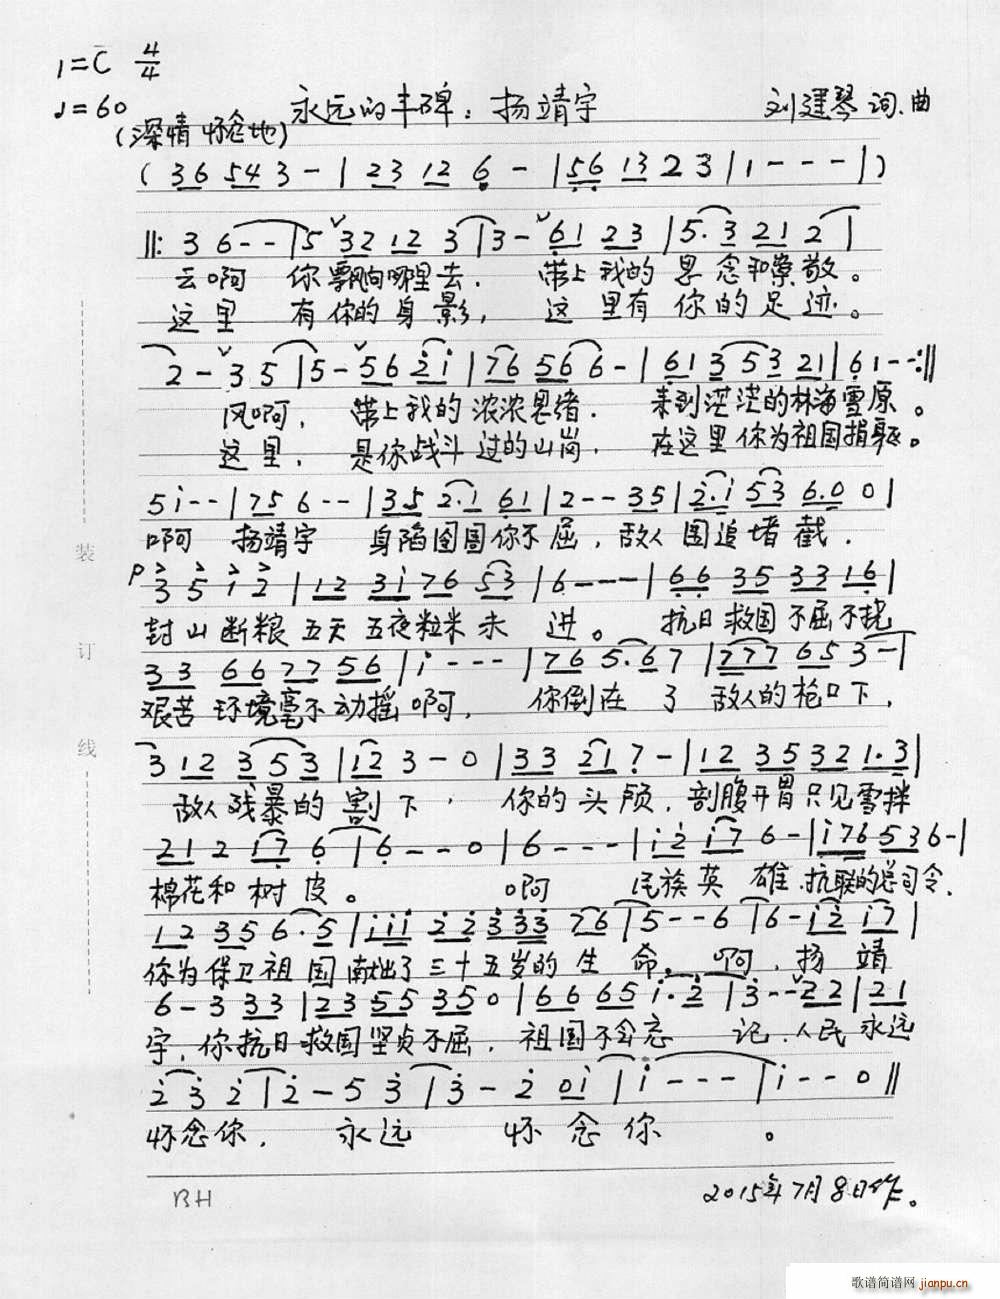 1=C 4/4
♩=60 永远的丰碑：扬靖宇 刘廷琴 词.曲
(深情 怀念地)
( 36 54 3 - | 23 12 6 - | 56 13 2 3 | 1 - - - | )
||: 3 6 - - | 5 32 12 3 | 3 - 61 23 | 5. 3 21 2 |
云啊 你飘向哪里去. 带上我的思念和崇敬。
这里 有你的身影, 这里有你的足迹。
2 - 3 5 | 5 - 56 2i | 76 56 6 - | 61 3 53 21 | 61 - - :||
风啊, 带上我的浓浓思绪. 来到茫茫的林海雪原。
这里, 是你战斗过的山岗, 在这里你为祖国捐躯。
5 i - - | 75 6 - - | 35 2.1 61 | 2 - - 35 | 2.i 53 6.0 0 |
啊 扬靖宇 身陷囹圄你不屈, 敌人围追堵截.
P 3 5 i 2 | 12 3i 76 53 | 6 - - - | 66 35 33 16 |
封山断粮五天五夜粒米未进。 抗日救国不屈不挠
33 66 77 56 | i - - - | 76 5.6 7 | 777 65 3 - |
艰苦环境毫不动摇啊, 你倒在了敌人的枪口下,
3 12 3 5 3 | 12 3 - 0 | 33 21 7 - | 12 35 32 1.3 |
敌人残暴的割下, 你的头颅, 剖腹开胃只见雪拌
21 2 i7 6 | 6 - - 0 | 6 - - - | i2 i7 6 - | i76 53 6 - |
棉花和树皮。 啊 民族英雄.抗联的总司令.
12 35 6. 5 | iii 22 333 76 | 5 - - 6 | 6 - i2 i7 |
你为保卫祖国献出了三十五岁的生命。啊, 扬靖
6 - 3 33 | 23 55 35 0 | 66 65 i. 2 | 3 - - 22 | 21
宇, 你抗日救国坚贞不屈. 祖国不会忘记.人民永远
2 3 2 | 2 - 5 3 | 3 - 2 0i | i - - - | i - - 0 ||
怀念你, 永远怀念你。
BH 2015年7月8日作。
装
订
线
歌谱简谱网 jianpu.cn